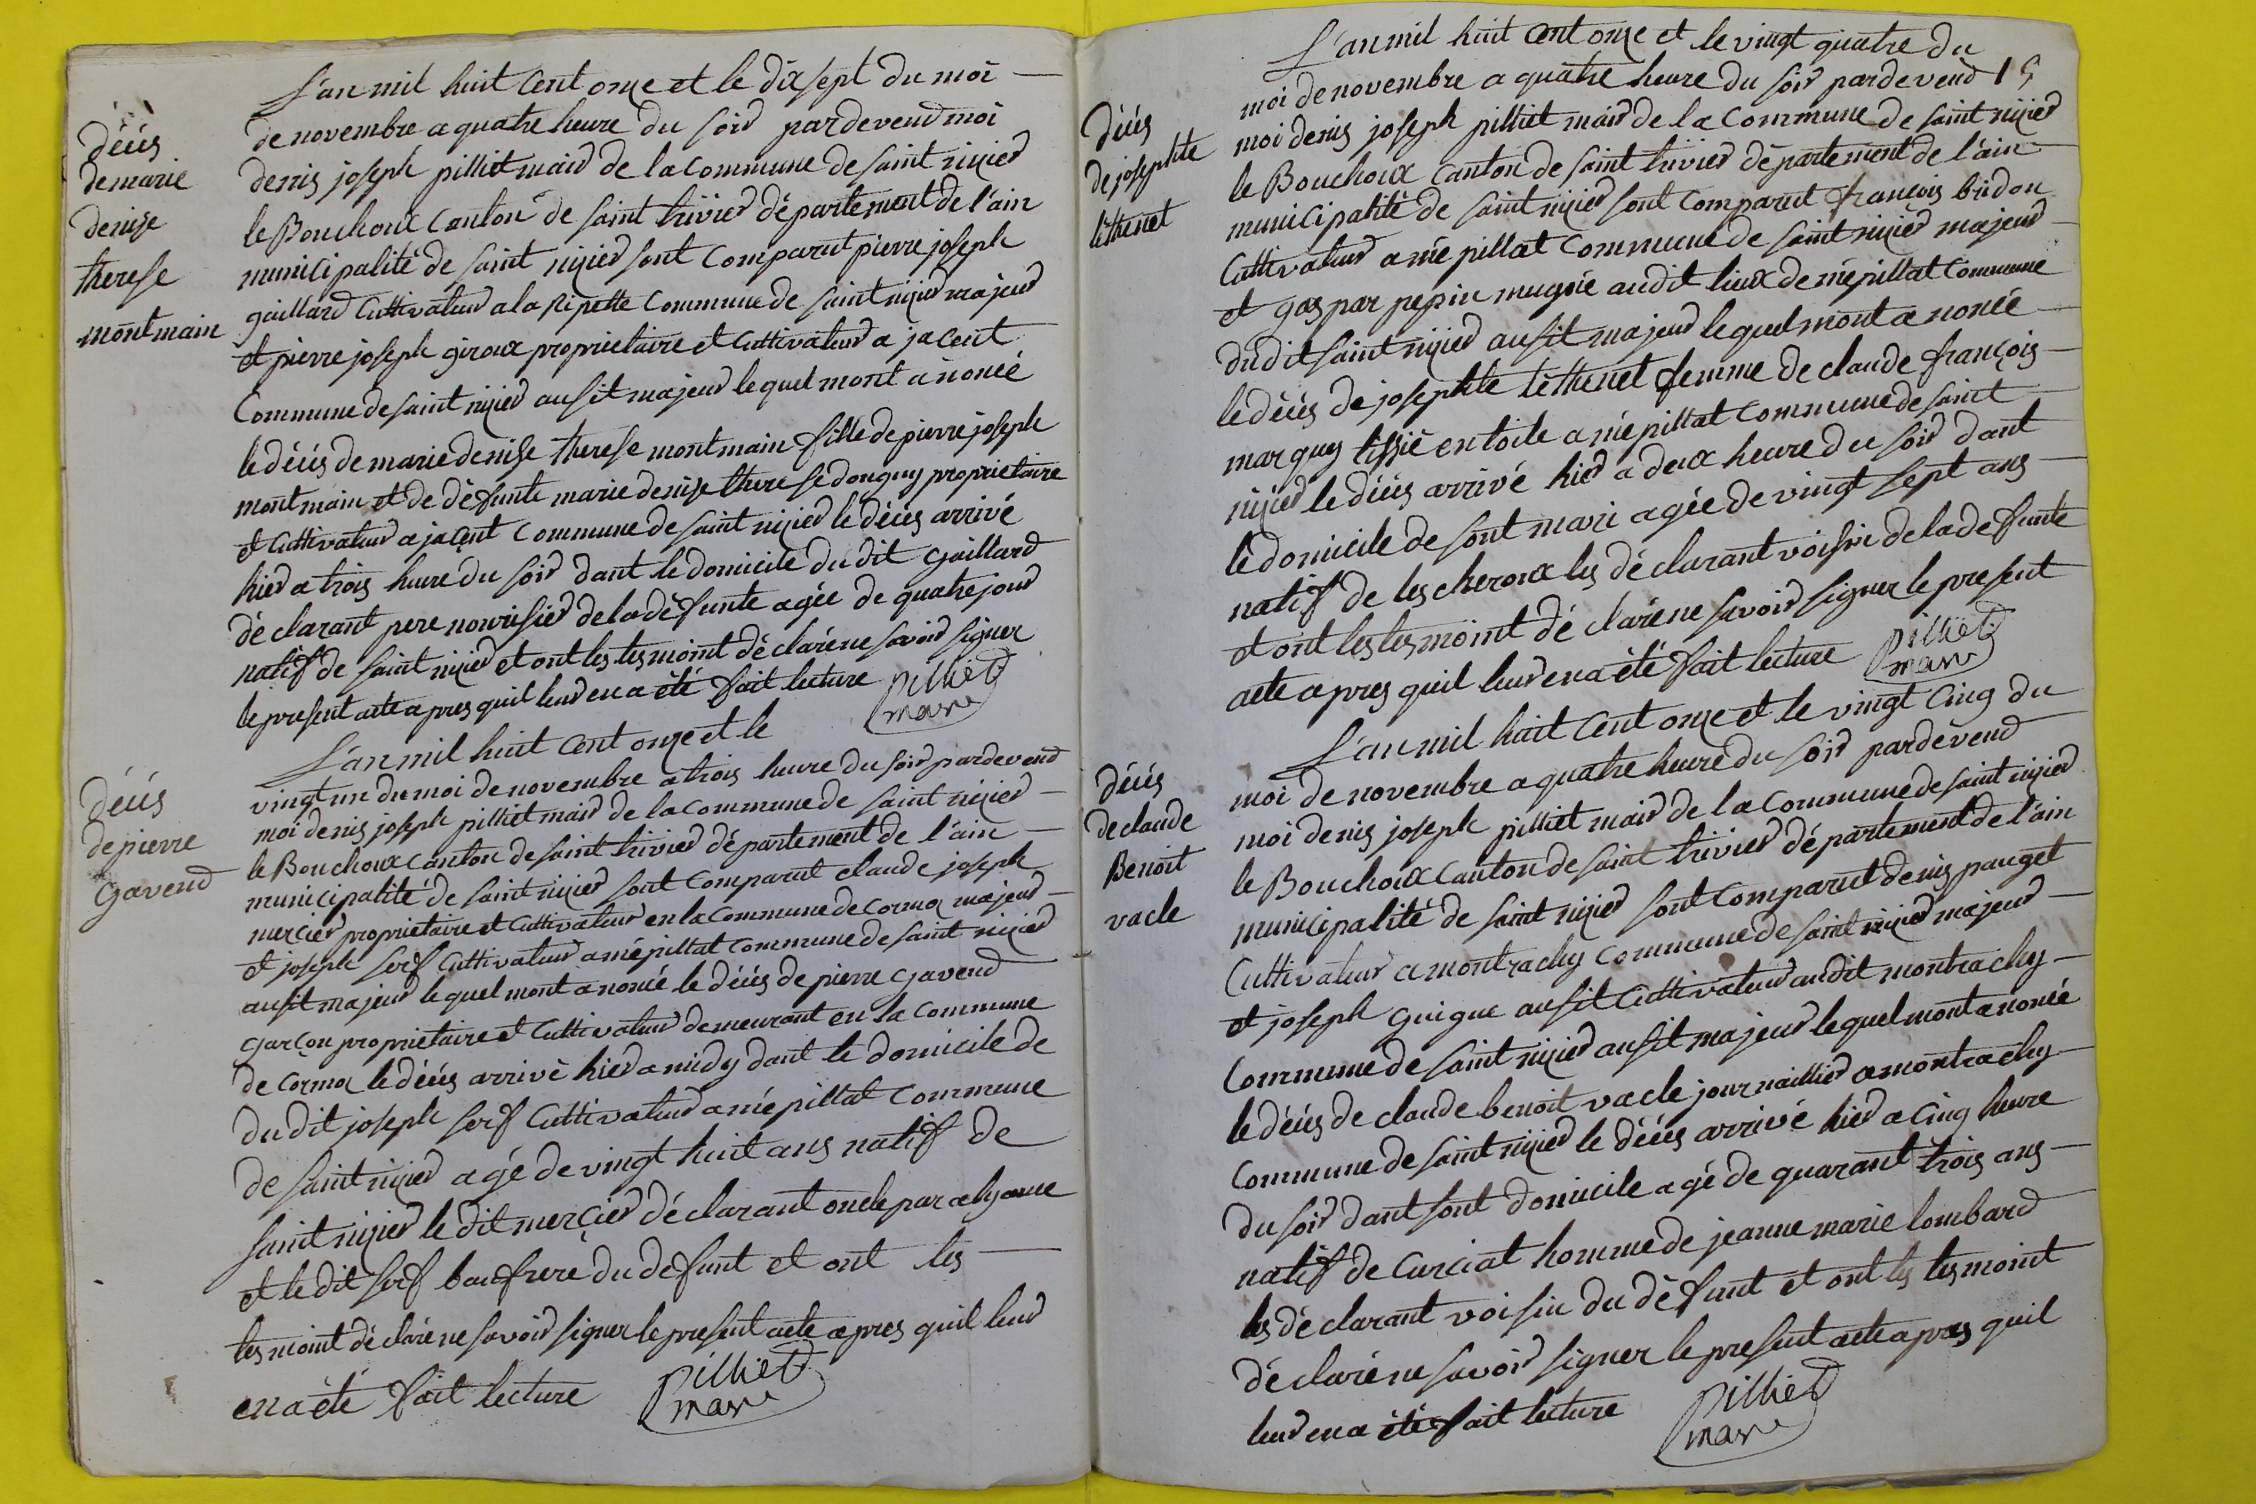 L'an mil huit cent onze et le dix sept du moi
décés
de marie
denise
therese
montmain
de novembre a quatre heure du soir pardevend moi
denis joseph pilliet mair de la commune de saint nizier
le Bouchoux canton de saint trivier département de l'ain
municipalité de saint nizier sont comparut pierre joseph
gaillard cultivateur a la ripette commune de saint nizier majeur
et pierre joseph giroux proprietaire et cultivateur a jacent
commune de saint nizier ausit majeur lequel mont a nonéé
le décés de marie denise therese montmain fille de pierre joseph
montmain et de défunte marie denise therese donguy proprietaire
et cultivateur a jacent commune de saint nizier le décés arrivé
hier a trois heure du soir dant le domicile du dit gaillard
déclarant pere nourisier de la défunte agée de quatre jour
natif de saint nizier et ont les tesmoint déclaré ne savoir signer
le present acte apres quil leur en a été fait lecture Pilliet
mair
L'an mil huit cent onze et le
décés
de pierre
gavend
vingt un du moi de novembre a trois heure du soir pardevend
moi denis joseph pilliet mair de la commune de saint nizier
le Bouchoux canton de saint trivier département de l'ain
municipalité de saint nizier sont comparut claude joseph
mercier proprietaire et cultivateur en la commune de cormoz majeur
et joseph serf cultivateur a mépillat commune de saint nizier
ausit majeur lequel mont a nonéé le décés de pierre gavend
garçon proprietaire et cultivateur demeurant en la commune
de cormoz le décés arrivé hier a midy dant le domicile de
du dit joseph serf cultivateur a mépillat commune
de saint nizier agé de vingt huit ans natif de
saint nizier le dit mercier déclarant oncle par alyance
et le dit serf baufrere du defunt et ont les
tesmoint déclaré ne savoir signer le present acte apres quil leur
en a été fait lecture Pilliet
mair
L'an mil huit cent onze et le vingt quatre du
décés
de josephte
téthenet
moi de novembre a quatre heure du soir pardevend 15
moi denis joseph pilliet mair de la commune de saint nizier
le Bouchoux canton de saint trivier département de l'ain
municipalité de saint nizier sont comparut françois bridon
cultivateur a mépillat commune de saint nizier majeur
et gaspar pepin mugnie audit lieux de mépillat commune
dudit saint nizier ausit majeur lequel mont a nonéé
le décés de josephte téthenet femme de claude françois
marguy tissié en toile a mépillat commune de saint
nizier le décés arrivé hier a deux heure du soir dant
le domicile de sont mari agée de vingt sept ans
natif de lescheroux les déclarant voisin de la defunte
et ont les tesmoint déclaré ne savoir signer le present
acte apres quil leur en a été fait lecture Pilliet
mair
L'an mil huit cent onze et le vingt cinq du
décés
de claude
Benoit
vacle
moi de novembre a quatre heure du soir pardevend
moi denis joseph pilliet mair de la commune de saint nizier
le Bouchoux canton de saint trivier département de l'ain
municipalité de saint nizier sont comparut denis pauget
cultivateur a montrachy commune de saint nizier majeur
et joseph guigue ausit cultivateur audit montrachy
commune de saint nizier ausit majeur lequel mont a nonéé
le décés de claude benoit vacle journaillier a montrachy
commune de saint nizier le décés arrivé hier a cinq heure
du soir dant sont domicile agé de quarant trois ans
natif de curciat homme de jeanne marie lombard
les déclarant voisin du défunt et ont les tesmoint
déclaré ne savoir signer le present acte apres quil
leur en a été fait lecture Pilliet
mair